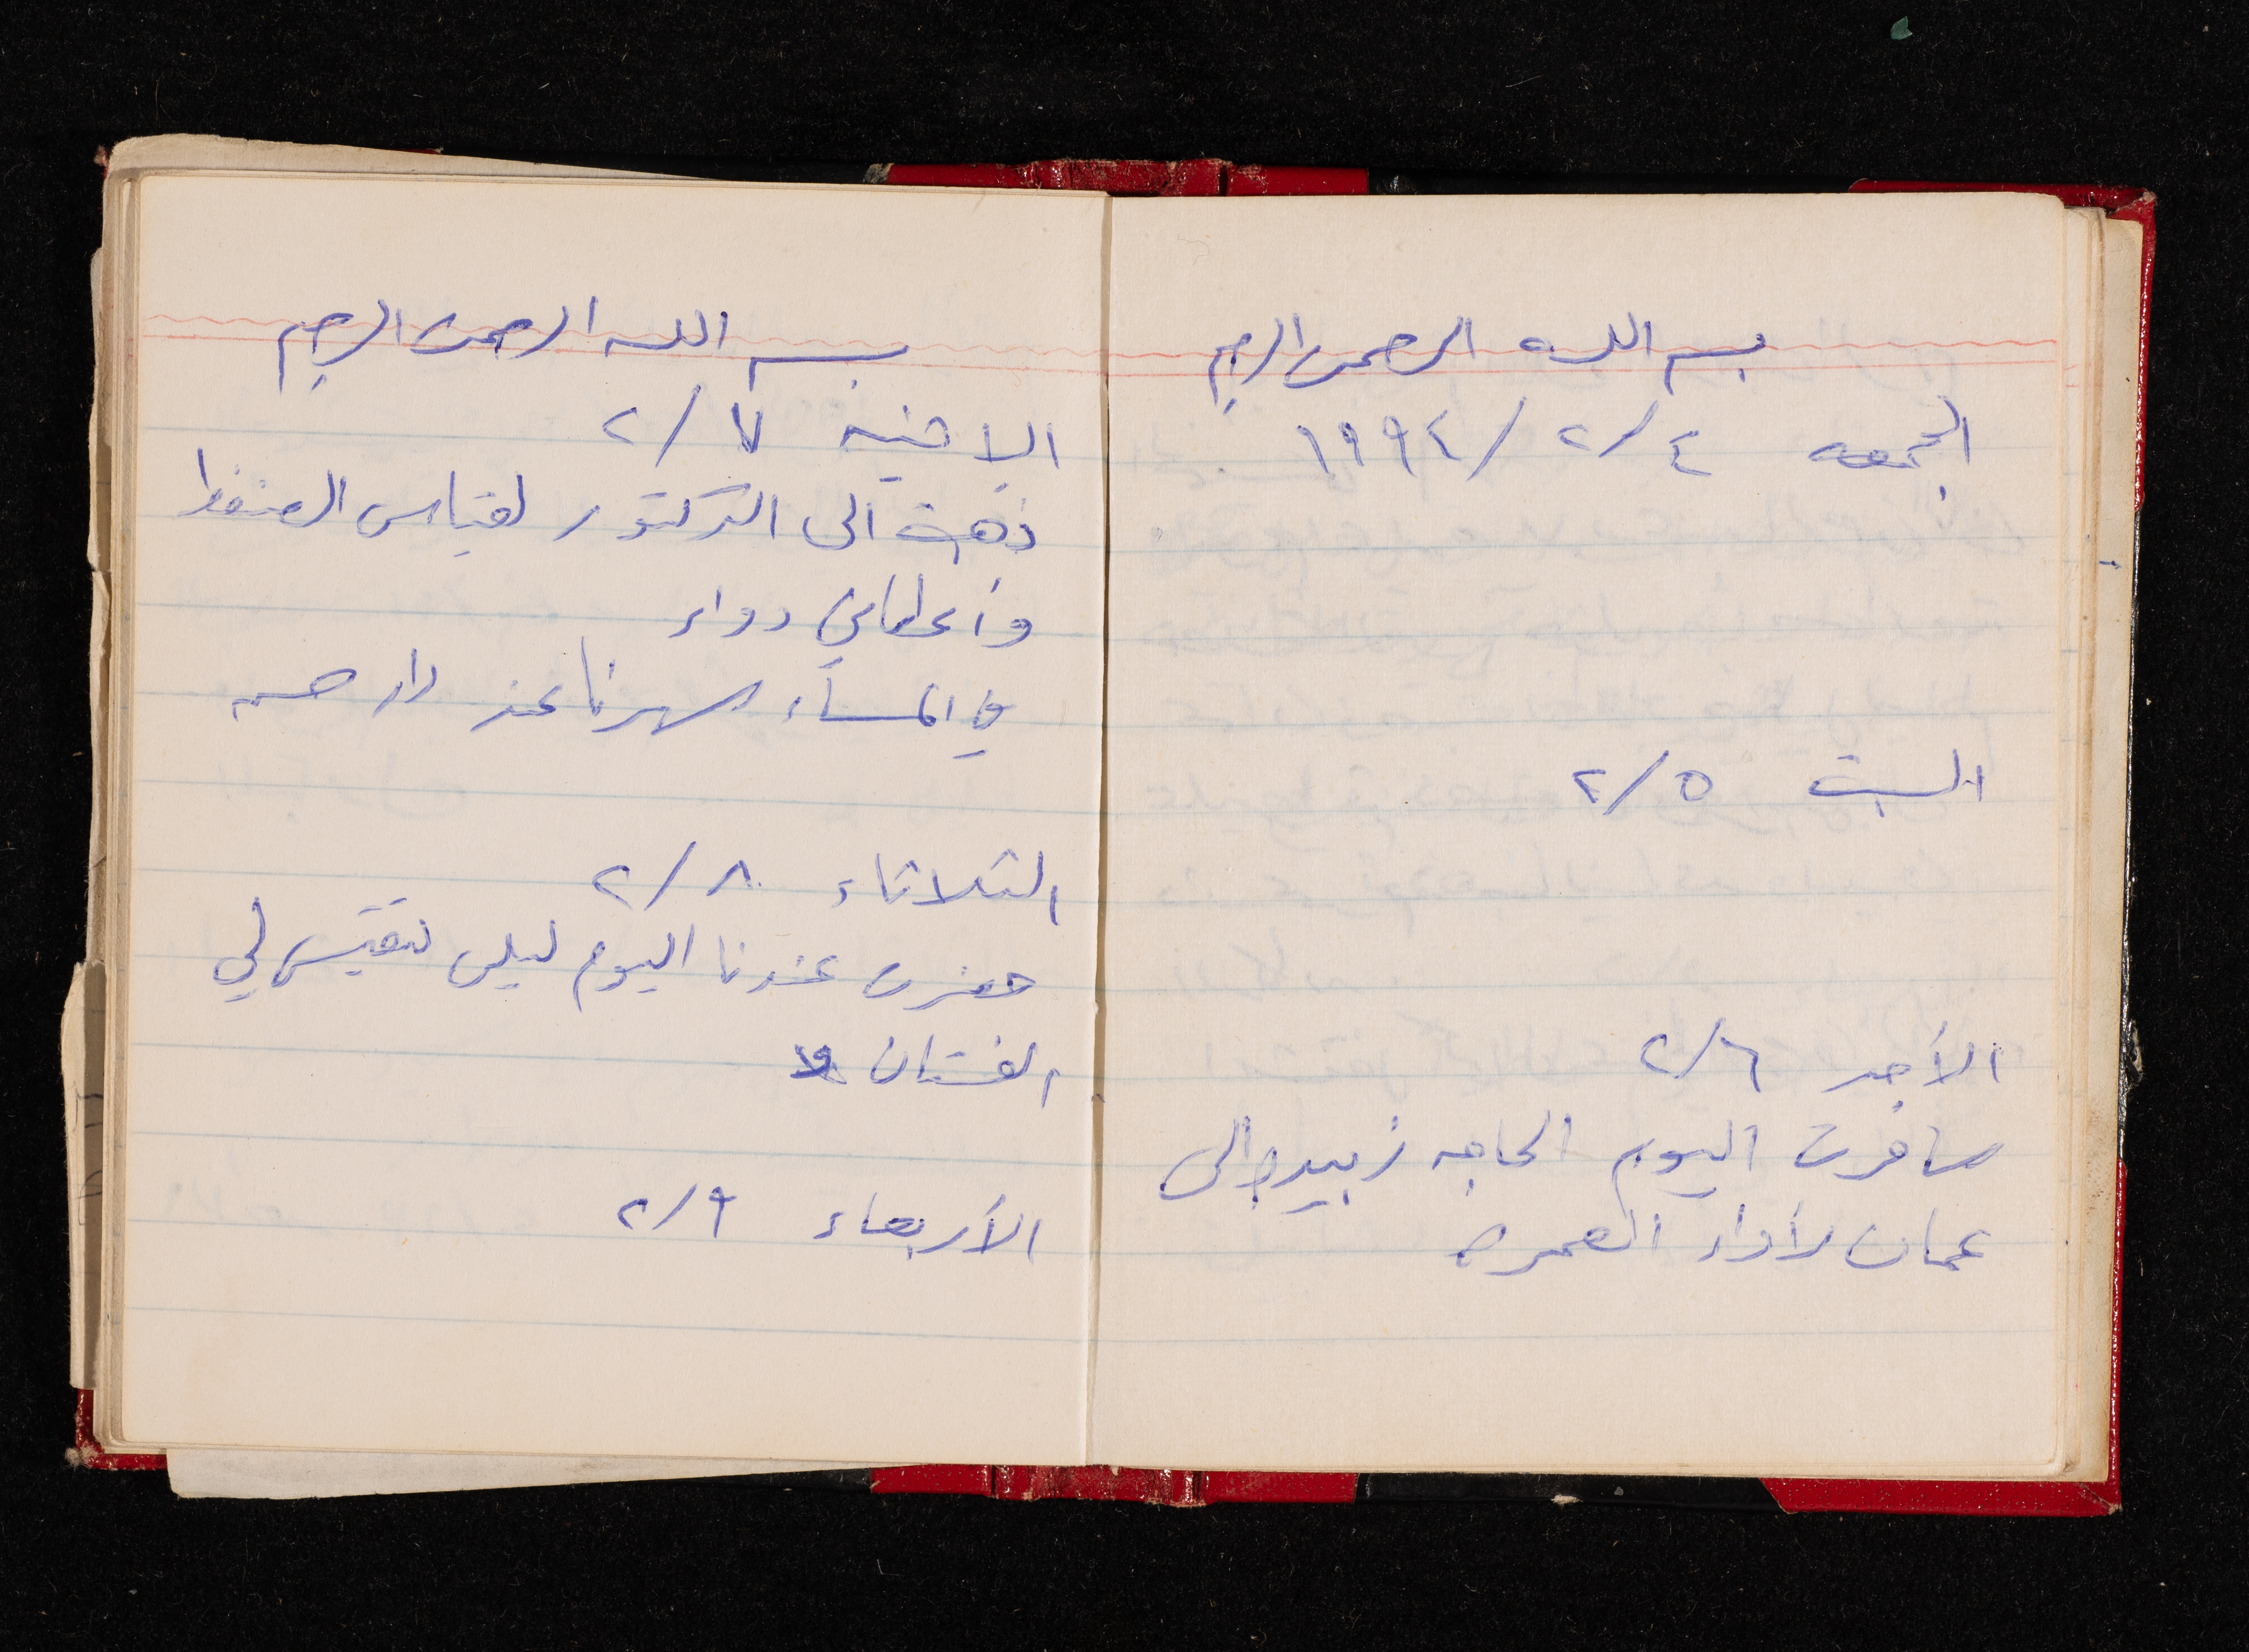 بسم الله الرحمن الرحيم
الجمعه ٤/٢/١٩٩٤
السبت ٥/٢
الأحد ٦/٢
سافرت اليوم الحاجه زبيده الى
عمان لأداء العمره
بسم الله الرحمن الرحيم
الاثنين ٧/٢
ذهبت الى الدكتور لقياس الضغط
وأعطاني دواء
في المساء سهرنا عند دار حسن
الثلاثاء ٨/٢
حضرت عندنا اليوم ليلى لتقيس لي
الفستان
الأربعاء ٩/٢